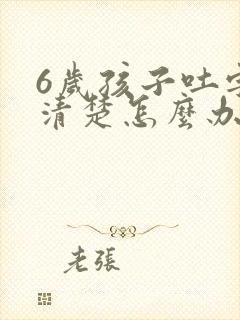 6歲孩子吐字
清楚怎麼办
老張